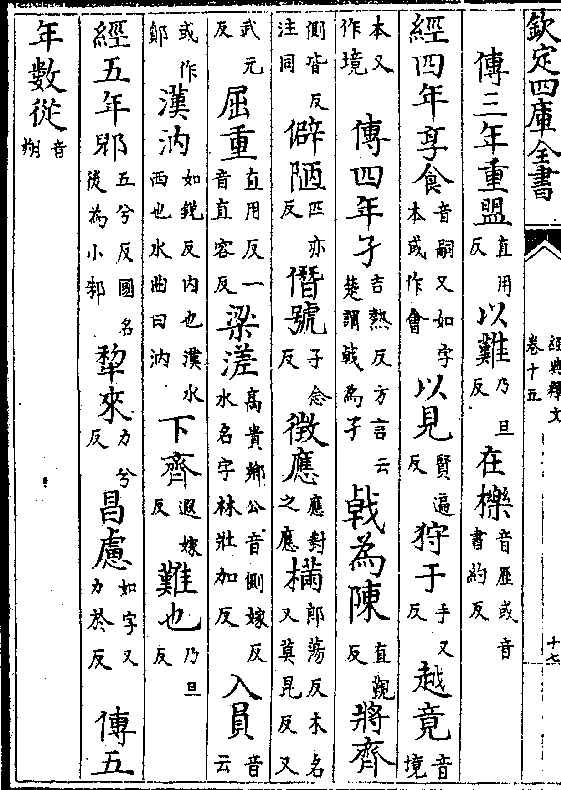 欽定四庫全書
經典釋文
卷十五
十七
傳三年重盟直用反以難乃旦反在櫟音歷或音書約反
經四年享食音嗣又如字本或作會以見賢遍反狩于手又反越竟音境
本又作境傳四年孑吉熱反方言云楚謂戟為孑戟為陳直覲反將齊
側皆反注同僻陋匹亦反僭號子念反徵應應對之應樠郎蕩反木名又莫昆反又
武元反屈重直用反一音直容反梁溠高貴鄉公音側嫁反水名字林壯加反入員音云
或作鄖漢汭如銳反內也漢水西也水曲曰汭下齊遐嫁反難也乃旦反
經五年郳五兮反國名後為小邾犂來力兮反昌慮如字又力於反傳五
年數從音朔